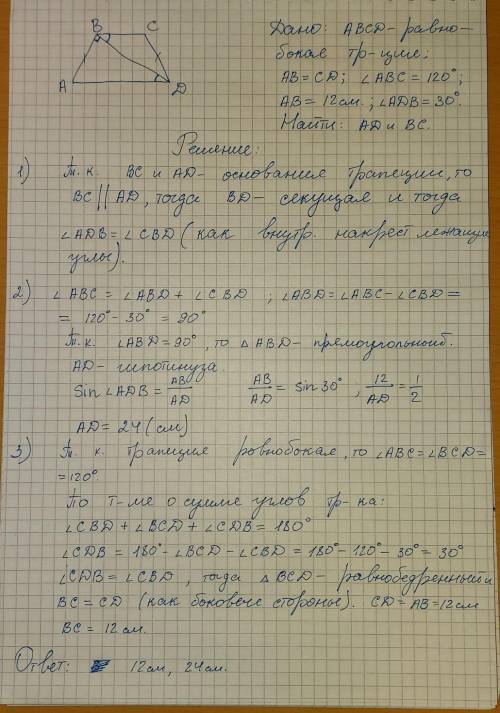 B
C
A
D
Дано: ABCD - равно-
бокая тр-ция;
AB = CD; ∠ABC = 120°;
AB = 12 см.; ∠ADB = 30°.
Найти: AD и BC.
Решение:
1) Т.к. BC и AD - основания трапеции, то
BC || AD, тогда BD - секущая и тогда
∠ADB = ∠CBD (как внутр. накрест лежащие
углы).
2) ∠ABC = ∠ABD + ∠CBD ; ∠ABD = ∠ABC - ∠CBD =
= 120° - 30° = 90°
Т.к. ∠ABD = 90°, то △ABD - прямоугольный.
AD - гипотинуза.
Sin ∠ADB = AB/AD AB/AD = sin 30°, 12/AD = 1/2
AD = 24 (см)
3) Т.к. трапеция ровнобокая, то ∠ABC = ∠BCD =
= 120°.
По т-ме о сумме углов тр-ка:
∠CBD + ∠BCD + ∠CDB = 180°
∠CDB = 180° - ∠BCD - ∠CBD = 180° - 120° - 30° = 30°
∠CDB = ∠CBD, тогда △BCD - равнобедренный и
BC = CD (как боковые стороны). CD = AB = 12 см
BC = 12 см.
Ответ: 12 см, 24 см.